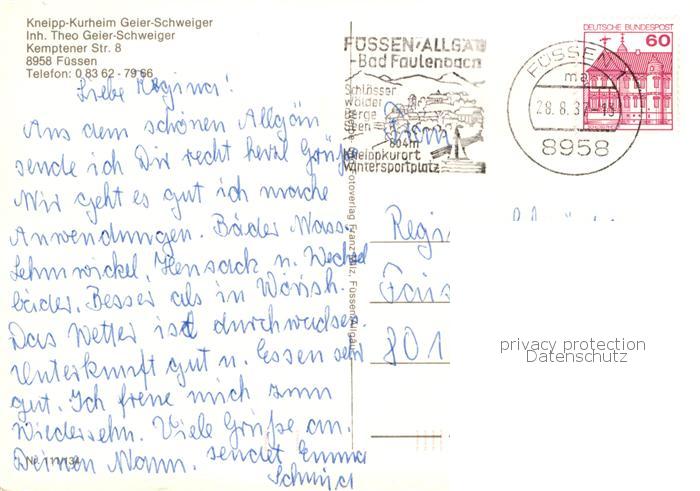 Kneipp-Kurheim Geier-Schweiger
Inh. Theo Geier-Schweiger
Kemptener Str. 8
8958 Füssen
Telefon: 0 83 62 - 79 66
Liebe Regina!
Aus dem schönen Allgäu
sende ich Dir recht herzl Grüße
Mir geht es gut ich mache
Anwendungen. Bäder Mass.
Lehmwickel, Heusack u. Wechsel
bäder. Besser als in Wörish.
Das Wetter ist durchwachsen.
Unterkunft gut u. Essen sehr
gut. Ich freue mich zum
Wiedersehn. Viele Grüße an
Deinen Mann. sendet Emma
Schmid
Nr. 111/134
FÜSSEN/ALLGÄU
-Bad Faulenbach
Schlösser
Wälder
Berge
Seen
804m
Kneippkurort
Wintersportplatz
FÜSSEN 1
ma
28.8.87-13
8958
DEUTSCHE BUNDESPOST
60
Fotoverlag Franz Milz, Füssen/Allgäu
Frau
Regi
801
privacy protection
Datenschutz